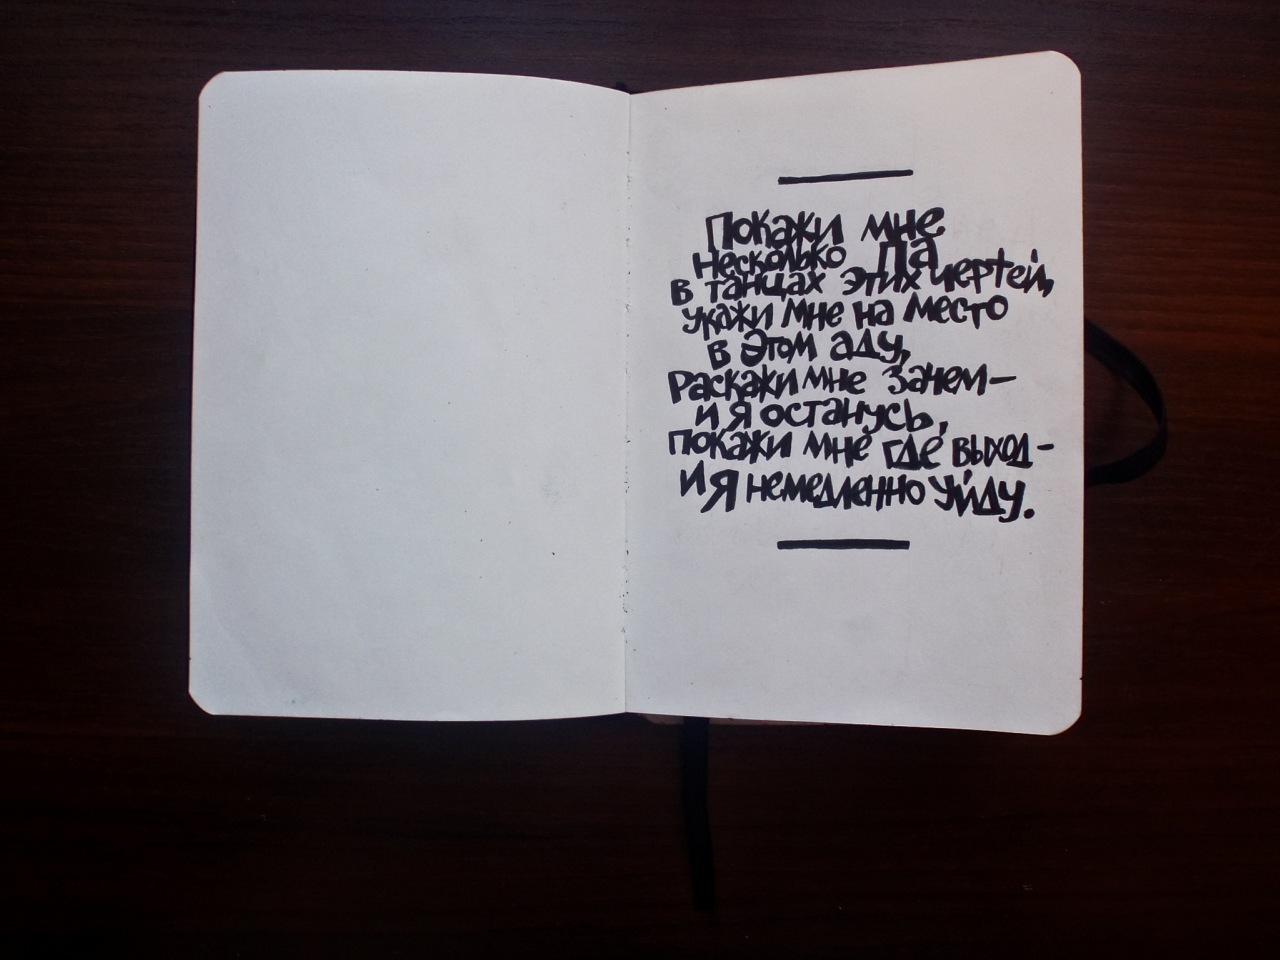 Покажи мне
несколько па
в танцах этих чертей,
укажи мне на место
в этом аду,
Раскажи мне зачем –
и я останусь,
покажи мне где выход –
и я немедленно уйду.